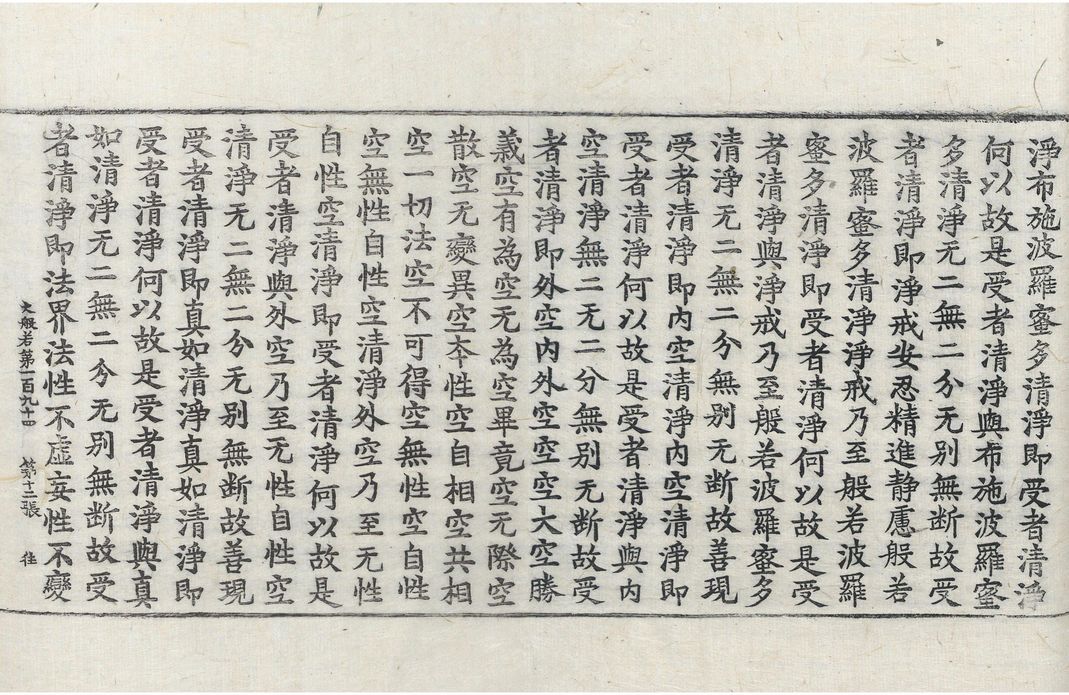 淨布施波羅蜜多清淨即受者清淨
何以故是受者清淨與布施波羅蜜
多清淨无二無二分无別無断故受
者清淨即淨戒安忍精進静慮般若
波羅蜜多清淨淨戒乃至般若波羅
蜜多清淨即受者清淨何以故是受
者清淨與淨戒乃至般若波羅蜜多
清淨无二無二分無別无断故善現
受者清淨即內空清淨內空清淨即
受者清淨何以故是受者清淨與內
空清淨無二无二分無別无断故受
者清淨即外空內外空空空大空勝
義空有為空无為空畢竟空无際空
散空无變異空本性空自相空共相
空一切法空不可得空無性空自性
空無性自性空清淨外空乃至无性
自性空清淨即受者清淨何以故是
受者清淨與外空乃至无性自性空
清淨无二無二分无別無断故善現
受者清淨即真如清淨真如清淨即
受者清淨何以故是受者清淨與真
如清淨无二無二分无別無断故受
者清淨即法界法性不虛妄性不變
大般若第一百九十四 第十二張 往